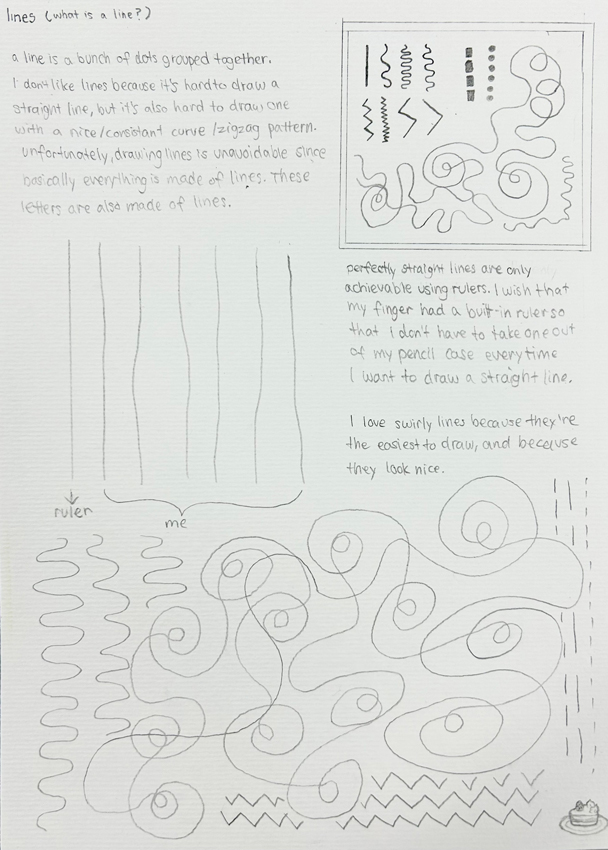 lines (what is a line?)
a line is a bunch of dots grouped together.
I don't like lines because it's hard to draw a
straight line, but it's also hard to draw one
with a nice/consistant curve/zigzag pattern.
unfortunately, drawing lines is unavoidable since
basically everything is made of lines. These
letters are also made of lines.
perfectly straight lines are only
achievable using rulers. I wish that
my finger had a built-in ruler so
that i don't have to take one out
of my pencil case everytime
I want to draw a straight line.
I love swirly lines because they're
the easiest to draw, and because
they look nice.
ruler
me